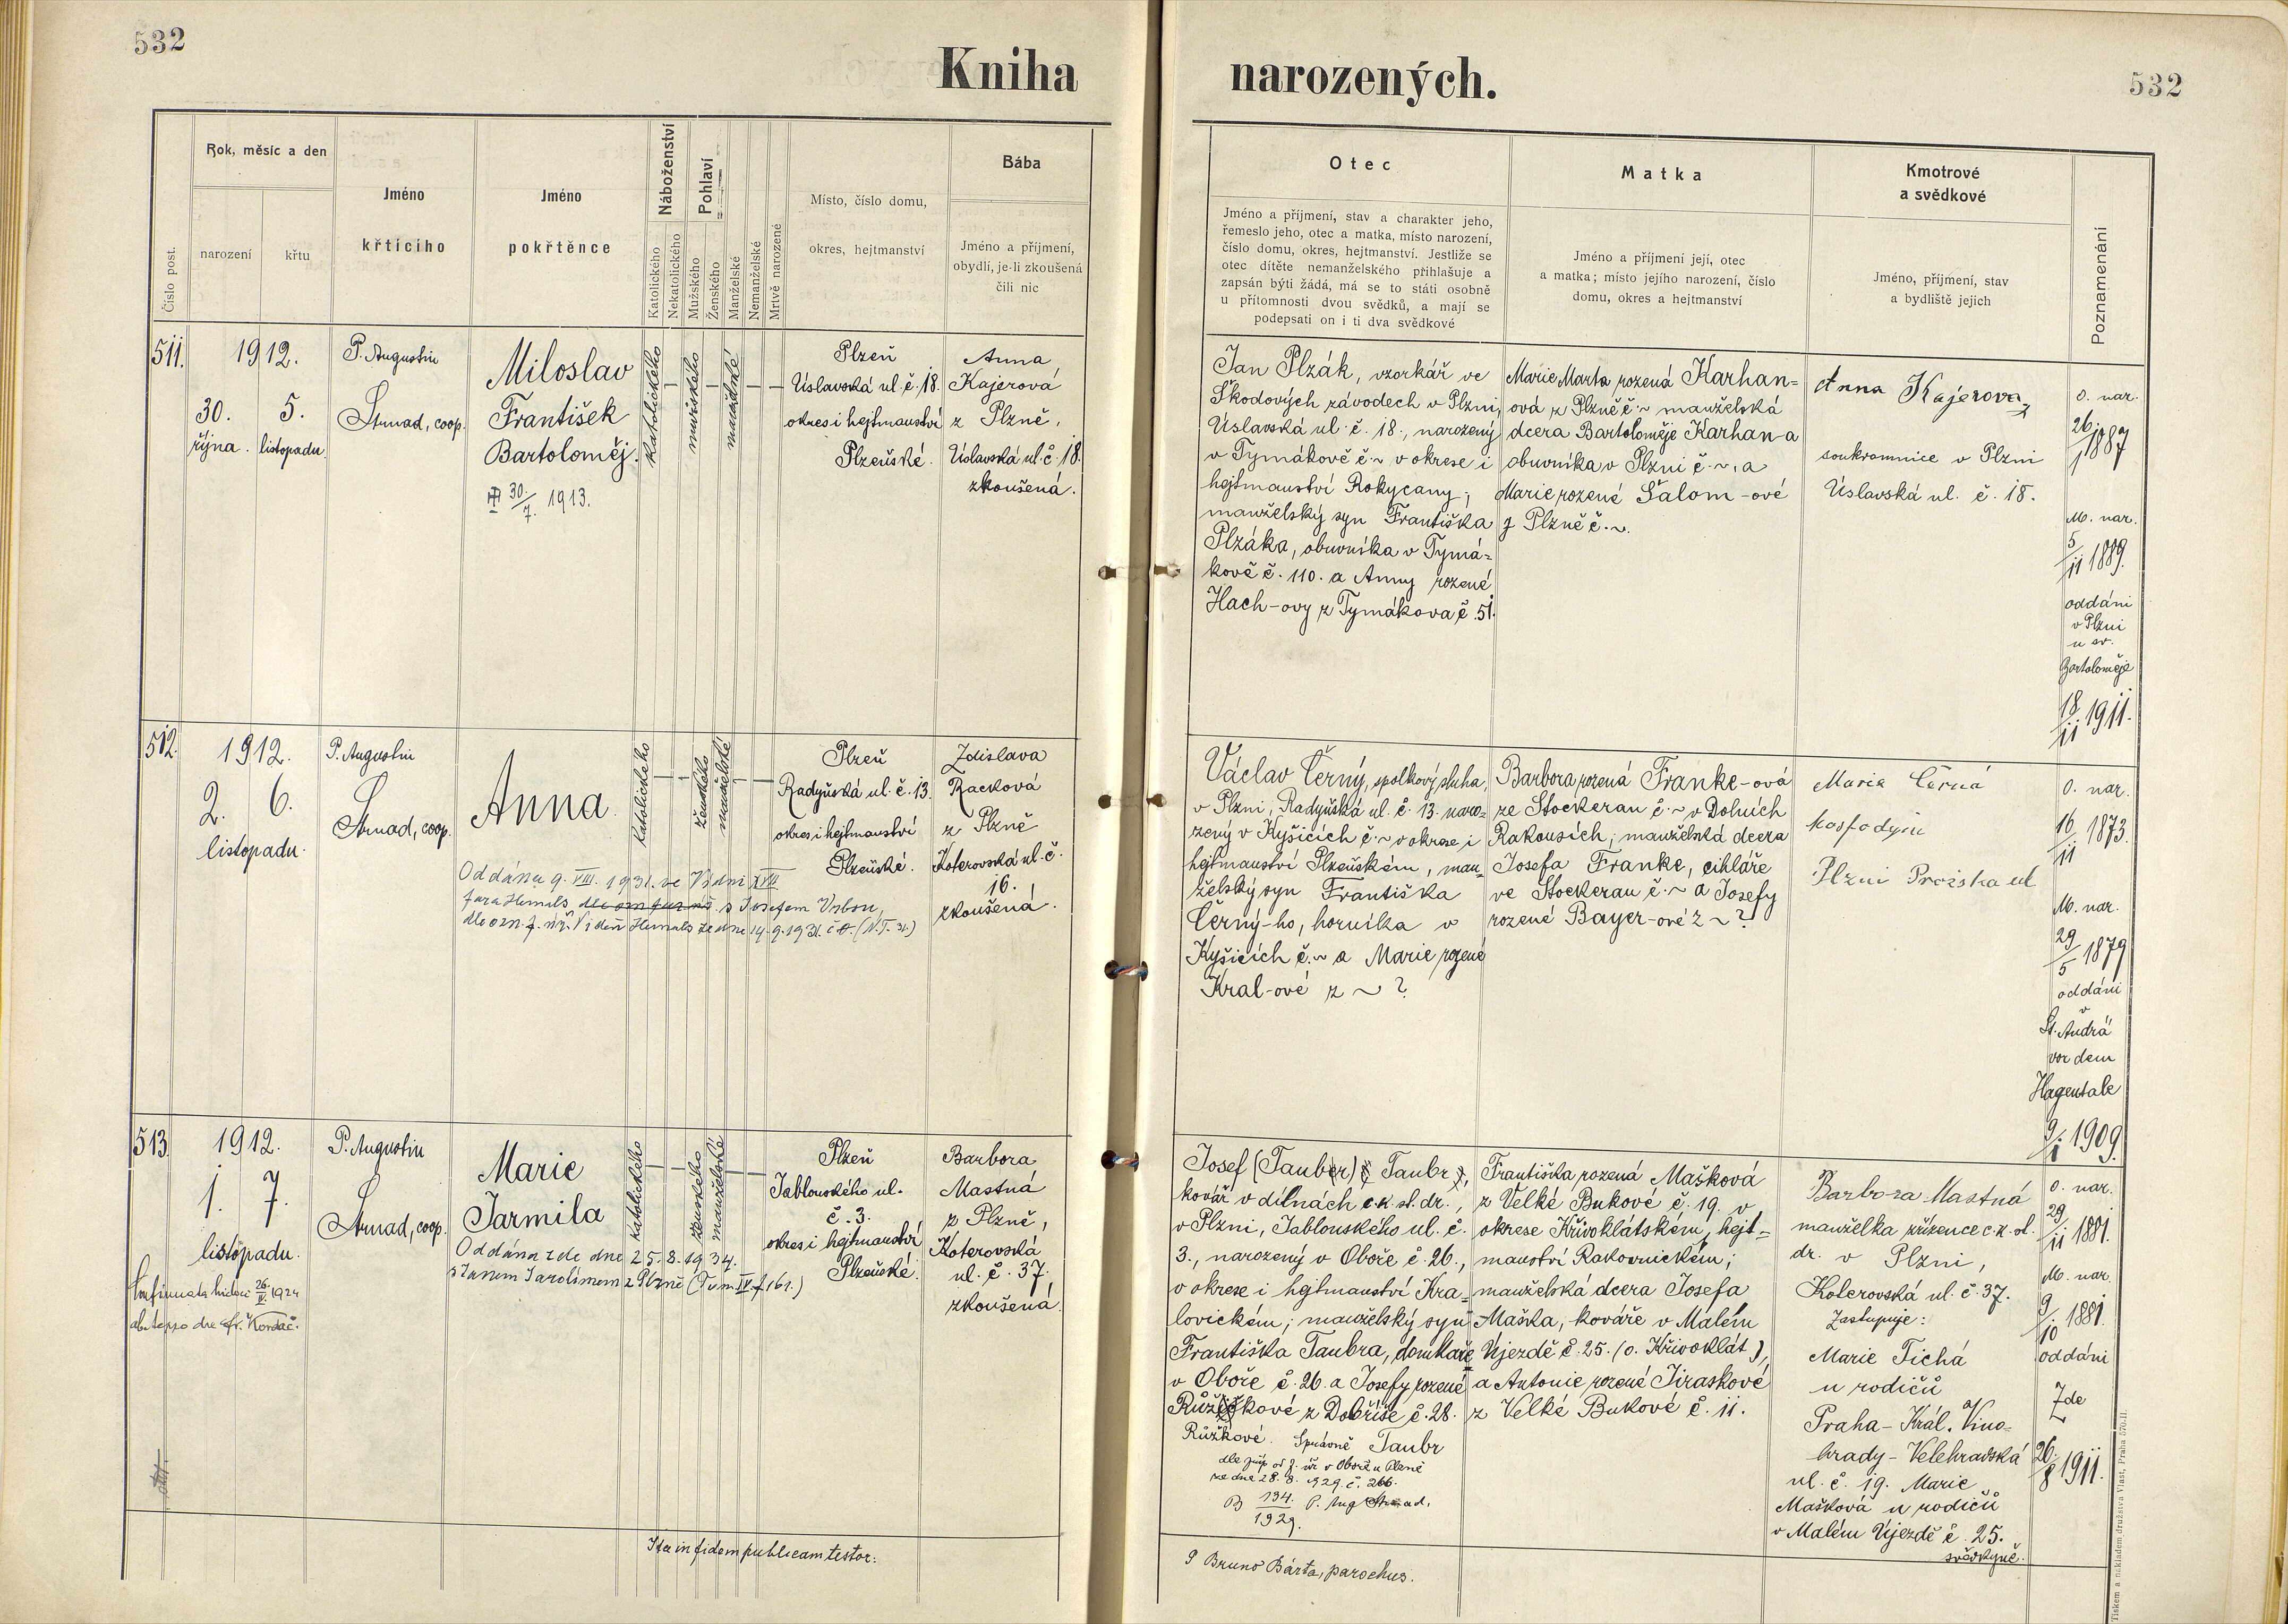 532
Kniha narozených.
532
Číslo post.
Rok, měsíc a den
narození
křtu
Jméno
křtícího
Jméno
pokřtěnce
Náboženství
Katolického
Nekatolického
Pohlaví
Mužského
Ženského
Manželské
Nemanželské
Mrtvě narozené
Místo, číslo domu,
okres, hejtmanství
Bába
Jméno a příjmení,
obydlí, je-li zkoušená
čili nic
Otec
Jméno a příjmení, stav a charakter jeho,
řemeslo jeho, otec a matka, místo narození,
číslo domu, okres, hejtmanství. Jestliže se
otec dítěte nemanželského přihlašuje a
zapsán býti žádá, má se to státi osobně
u přítomnosti dvou svědků, a mají se
podepsati on i ti dva svědkové
Matka
Jméno a příjmení její, otec
a matka; místo jejího narození, číslo
domu, okres a hejtmanství
Kmotrové
a svědkové
Jméno, příjmení, stav
a bydliště jejich
Poznamenání
511.
1912.
30. 5.
října. listopadu.
P. Augustin
Strnad, coop.
Miloslav
František
Bartoloměj.
30/7. 1913.
katolického
mužského
manželské
Plzeň
Úslavská ul. č. 18.
okres i hejtmanství
Plzeňské.
Anna
Kajerová
z Plzně,
Úslavská ul. č. 18.
zkoušená.
Jan Plzák, vzorkář ve
Škodových závodech v Plzni,
Úslavská ul. č. 18., narozený
v Tymákově č. ~ v okrese i
hejtmanství Rokycany;
manželský syn Františka
Plzáka, obuvníka v Tymá-
kově č. 110. a Anny rozené
Hach-ovy z Tymákova č. 51.
Marie Marta rozená Karhan-
ová z Plzně č ~ manželská
dcera Bartoloměje Karhan-a
obuvníka v Plzni č. ~, a
Marie rozené Šalom-ové
z Plzně č. ~.
Anna Kajerova
soukromnice v Plzni
Úslavská ul. č. 18.
O. nar.
26/1 1887
M. nar.
5/11 1889.
oddáni
v Plzni
u sv.
Bartoloměje
18/11 1911.
512.
1912.
2. 6.
listopadu.
P. Augustin
Strnad, coop.
Anna
Oddána 9. VIII. 1931. ve Vídni XVII
fara Hernals s Josefem Vrbou,
katolického
ženského
manželské
Plzeň
Radyňská ul. č. 13.
okres i hejtmanství
Plzeňské.
Zdislava
Racková
z Plzně
Koterovská ul. č.
16.
zkoušená.
Václav Černý, spolkový sluha,
v Plzni, Radyňská ul. č. 13. naro-
zený v Kyšicích č. ~ v okrese i
hejtmanství Plzeňském, man-
želský syn Františka
Černý-ho, horníka v
Kyšicích č. ~ a Marie rozené
Kral-ové z ~ ?
Barbora rozená Franke-ová
ze Stockerau č. ~ v Dolních
Rakousích; manželská dcera
Josefa Franke, cihláře
ve Stockerau č. ~ a Josefy
rozené Bayer-ové z ~ ?
Marie Černá
hospodyň
Plzni Pražska ul
O. nar.
16/11 1873.
M. nar.
29/5 1879
oddáni
v
St. Andrä
vor dem
Hagentale
9/1 1909.
513.
1912.
1. 7.
listopadu.
P. Augustin
Strnad, coop.
Marie
Jarmila
Oddána zde dne 25.8.1934.
s Janem Jarolímem z Plzně (Tom. IV. f. 161.)
katolického
ženského
manželské
Plzeň
Jablonského ul.
č. 3.
okres i hejtmanství
Plzeňské.
Barbora
Mastná
z Plzně,
Koterovská
ul. č. 37.
zkoušená.
Josef (Tauber) Taubr,
kovář v dílnách c.k. st. dr.,
v Plzni, Jablonského ul. č.
3., narozený v Oboře č. 26.,
v okrese i hejtmanství Kra-
lovickém; manželský syn
Františka Taubra, domkáře
v Oboře č. 26. a Josefy rozené
Růžičkové z Dobříše č. 28.
Růžkové. Správně Taubr
ze dne 28. 8. 1929. č. 266.
134.
P. Aug Strnad.
1929.
Františka rozená Mašková
z Velké Bukové č. 19. v
okrese Křivoklátském, hejt-
manství Rakovnickém;
manželská dcera Josefa
Maška, kováře v Malém
Újezdě č. 25. (o. Křivoklát),
a Antonie rozené Jiraskové
z Velké Bukové č. 11.
Barbora Mastná
manželka zřízence c.k. st.
dr. v Plzni,
Koterovská ul. č. 37.
Zastupuje:
Marie Tichá
u rodičů
Praha - Král. Vino-
hrady - Velehradská
ul. č. 19. a Marie
Mašková u rodičů
v Malém Újezdě č. 25.
svědkyně.
O. nar.
29/11 1881.
M. nar.
9/10 1881.
oddáni
Zde
26/8 1911.
Ita in fidem publicam testor:
P Bruno Bárta, parochus.
Tiskem a nákladem družstva Vlast, Praha 570-II.